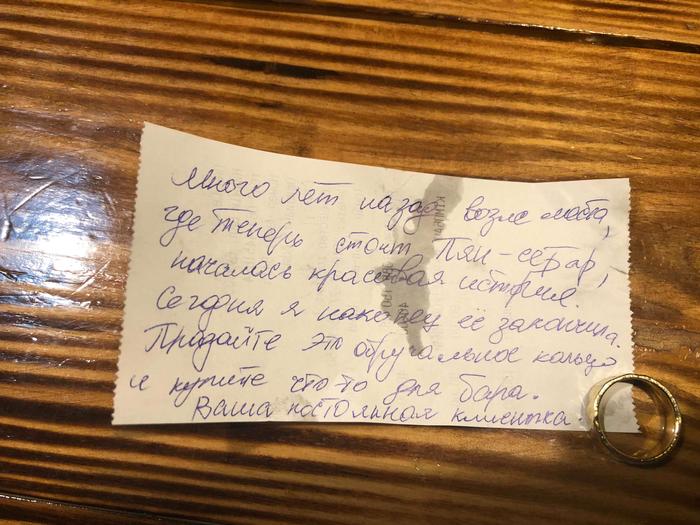 Много лет назад возле моста,
где теперь стоит Пян-се бар,
началась красивая история.
Сегодня я наконец её закончила.
Продайте это обручальное кольцо
и купите что то для бара.
Ваша постояльная клиентка.